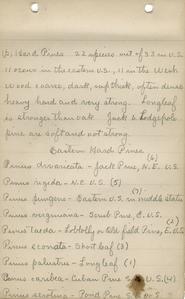 (b) Hard Pines 22 species out of 33 in U.S.
11 occur in the eastern U.S., 11 in the West
Wood coarse, dark, sap thick, often dense
heavy hard and very strong. Longleaf
is stronger than oak. Jack & Lodgepole
pine are soft and not strong.
Eastern Hard Pines
(6)
Pinus divaricata - Jack Pine, N.E. U.S.
Pinus rigida - N.E. U.S. (5)
(7)
Pinus pungens - Eastern U.S. in middle states
Pinus virginiana - Scrub Pine, E. U.S.
(2)
Pinus taeda - Loblolly or Old field Pine, E. U.S.
Pinus echinata - Short leaf (3)
Pinus palustris - Longleaf (1)
Pinus caribea - Cuban Pine S. U.S. (4)
Pinus serotina - Pond Pine